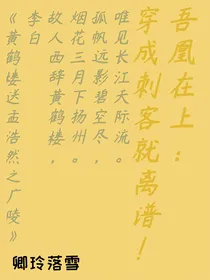 吾凰在上：
穿成刺客就离谱！
《黄鹤楼送孟浩然之广陵》
李白
故人西辞黄鹤楼，
烟花三月下扬州。
孤帆远影碧空尽，
唯见长江天际流。
卿玲落雪